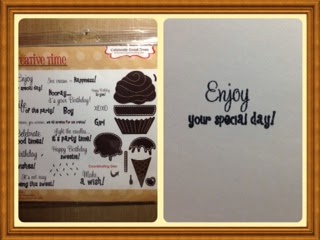 Creative Time
Celebrate Good Times
Enjoy
special day!
Ice cream = happiness!
Hooray...
it's your Birthday!
of the party!
Boy
XOXO
Girl
Celebrate
good times!
Light the candles...
it's party time!
Birthday
wishes
Happy Birthday
sweetie!
It's not easy
being this sweet!
Make
a wish!
Enjoy
your special day!